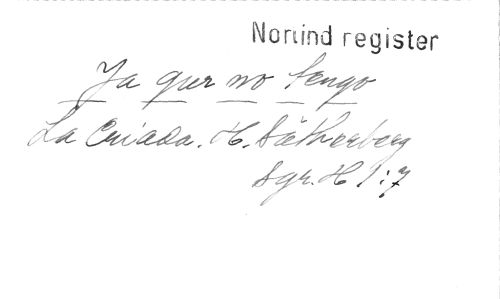 Norlind register
Ya que no tengo
La Criada. H. Sätherberg
Sgr. H 1:7